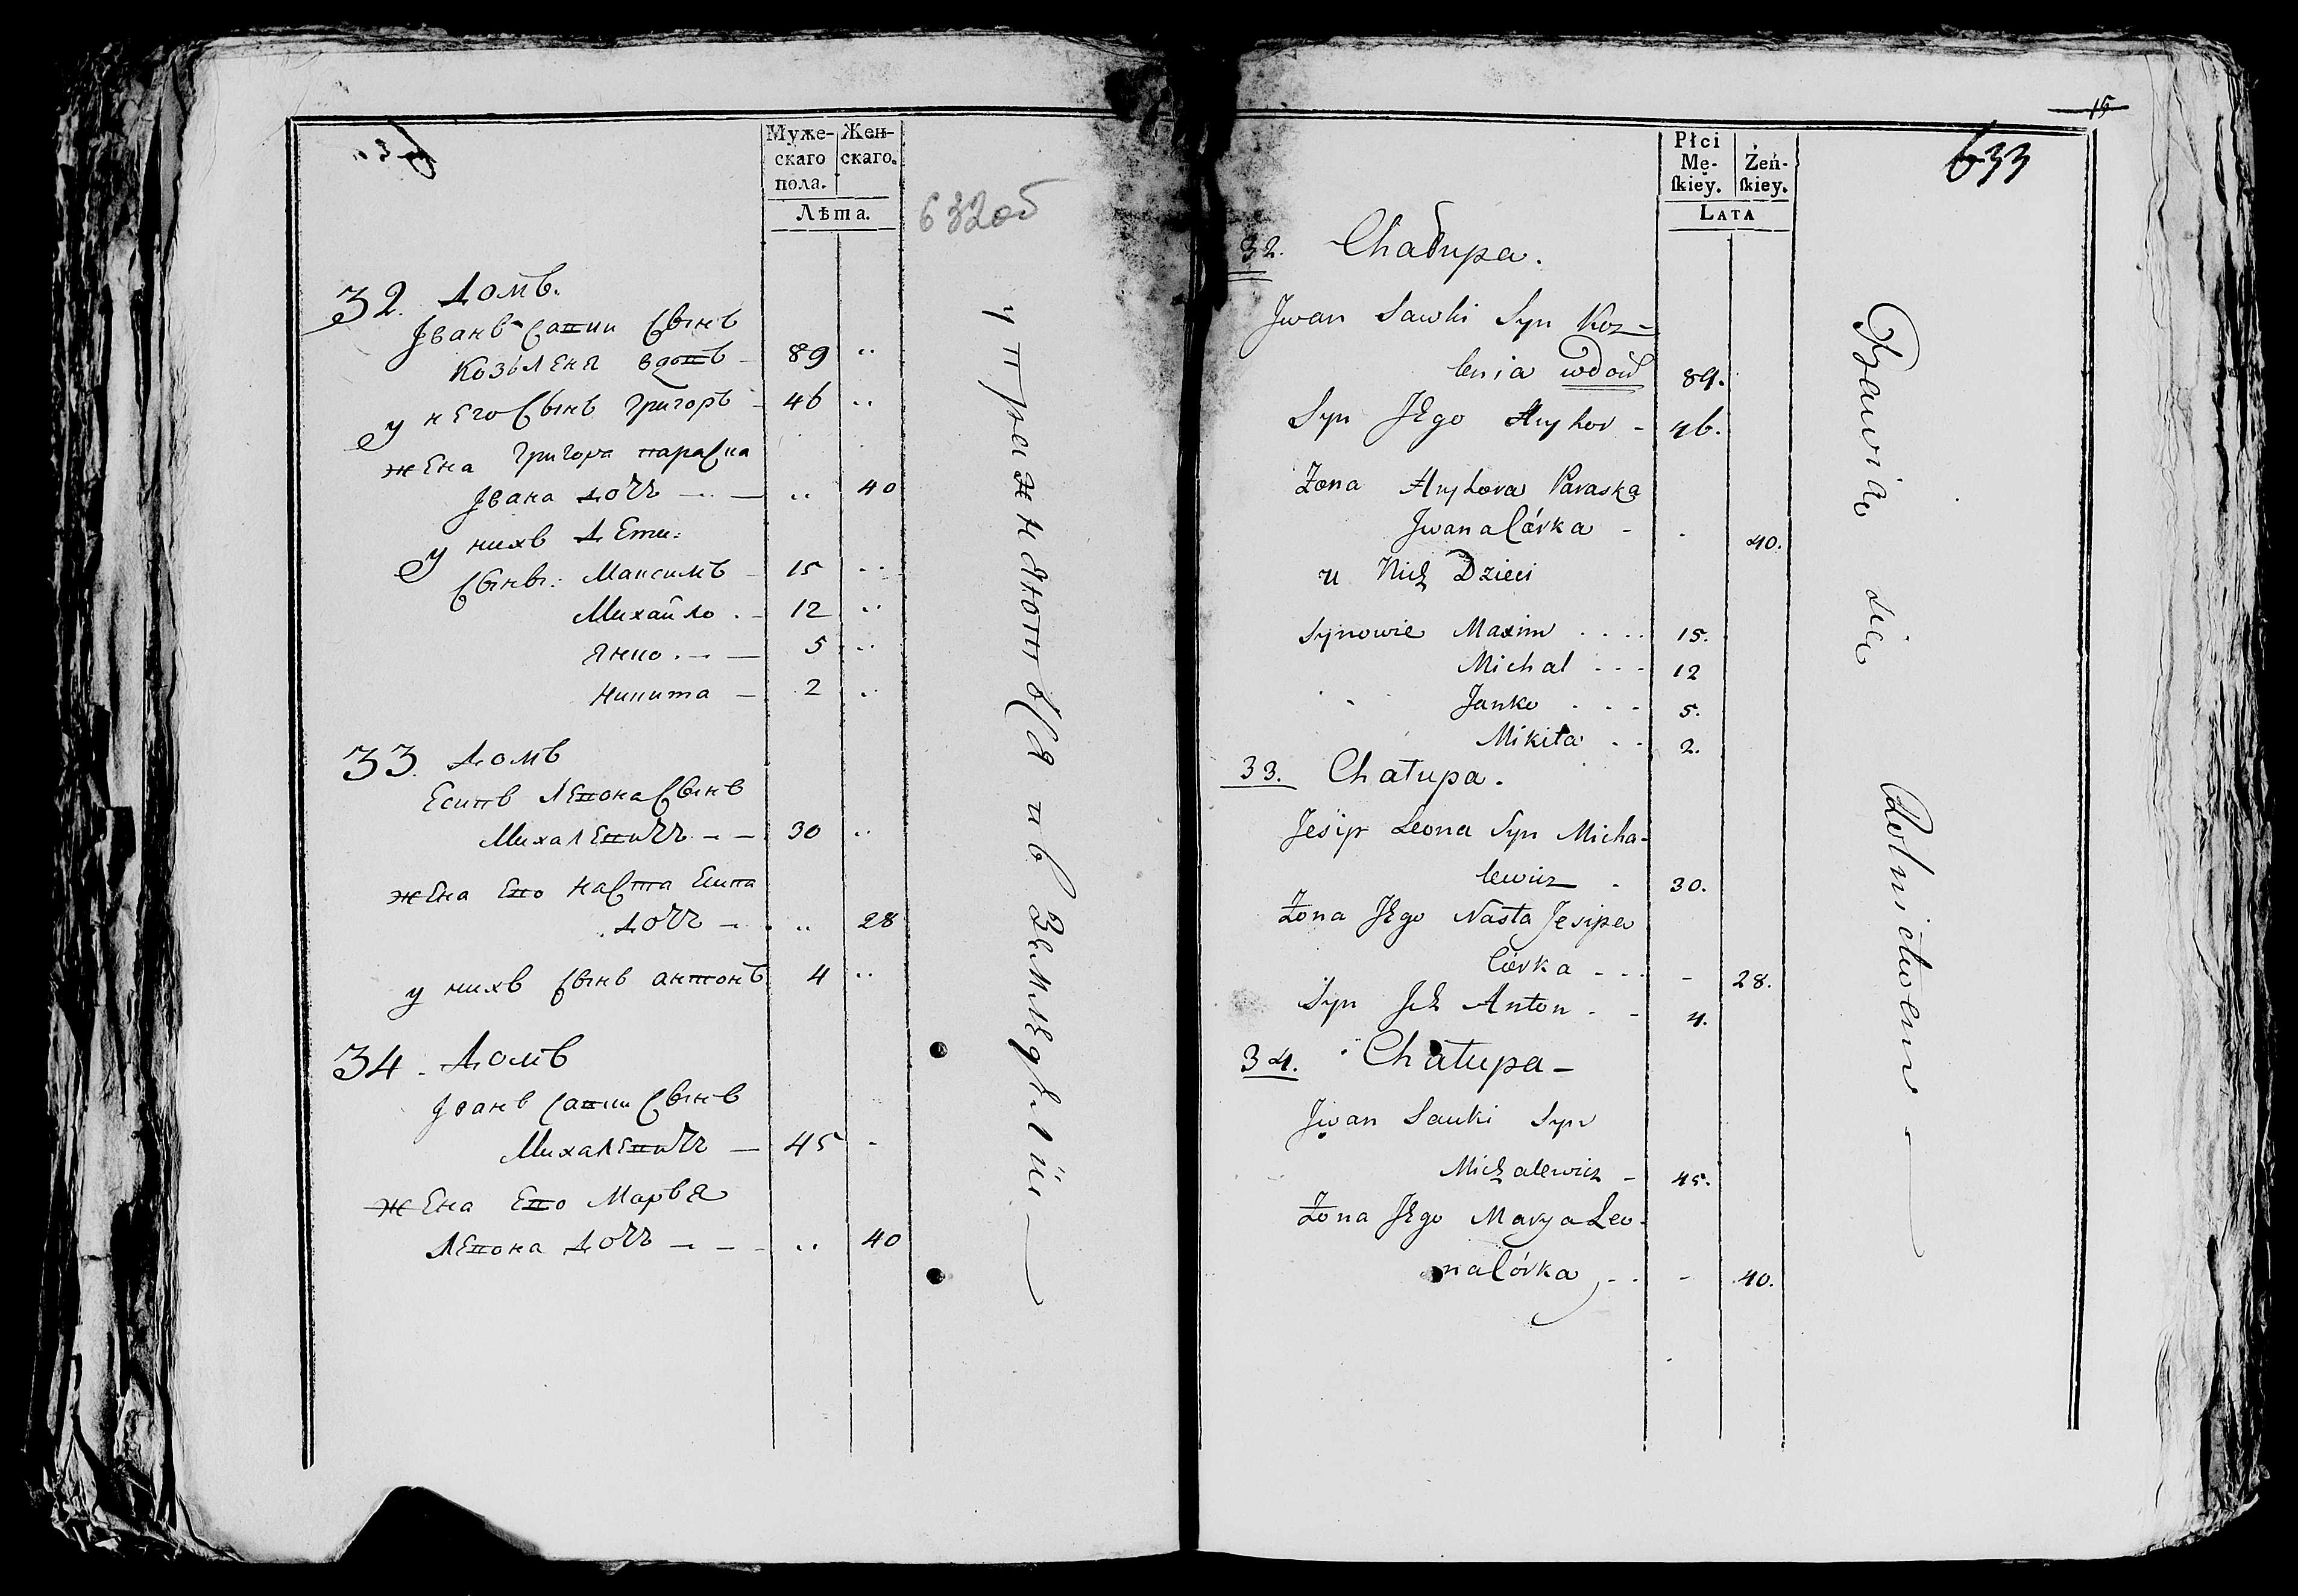 Муже-
скаго
пола.
Жен-
скаго.
Лѣта.
632об
32. Домъ.
Іванъ Савки Сынъ
Козьленя вдовъ - 89 "
у него Сынъ Григоръ - 46 "
жена Григора параска
Івана дочь - - " 40
у нихъ дети:
Сыны: Максимъ - 15 "
Михайло . - 12 "
Янко . - - 5 "
Никита - 2 "
33. Домъ
Есипъ Левона Сынъ
Михалевичь - - 30 "
жена его Наста Есипа
дочь - . " 28
у нихъ Сынъ антонъ 4 "
34. Домъ
Іванъ Савки Сынъ
Михалевичь - 45 -
жена его Марья
Левона дочь - - - " 40
упражняются въ Земледѣлии
15
633
Płci
Mę-
skiey.
Żeń-
skiey.
LATA
32. Chałupa.
Jwan Sawki Syn Koz-
lenia wdow 89.
Syn JEgo Hryhor - 46.
Zona Hryhora Paraska
Jwana Córka - . 40.
u Nich Dzieci
Synowie Maxim . . . . 15.
Michal - - - 12
Janko . - - 5.
Mikita . - 2.
33. Chałupa.
Jesip Leona Syn Micha-
lewicz . 30.
Żona JEgo Nasta Jesipa
Córka - - - - 28.
Syn Ich Anton . - 4.
34. Chałupa -
Jwan Sauki Syn
Michalewicz - 45.
Żona JEgo Marya Leo-
na Córka - . - 40.
Bawią się Rolnictwem